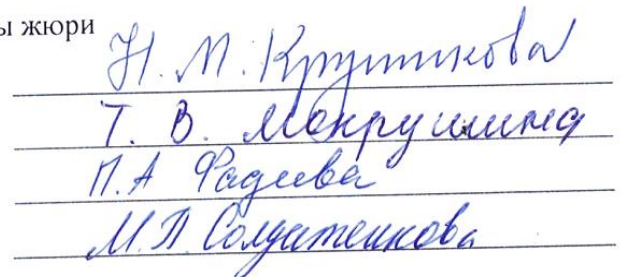 ы жюри
Н. М. Крутикова
Т. В. Мокрушина
П.А Фадеева
М.П. Солдатенкова